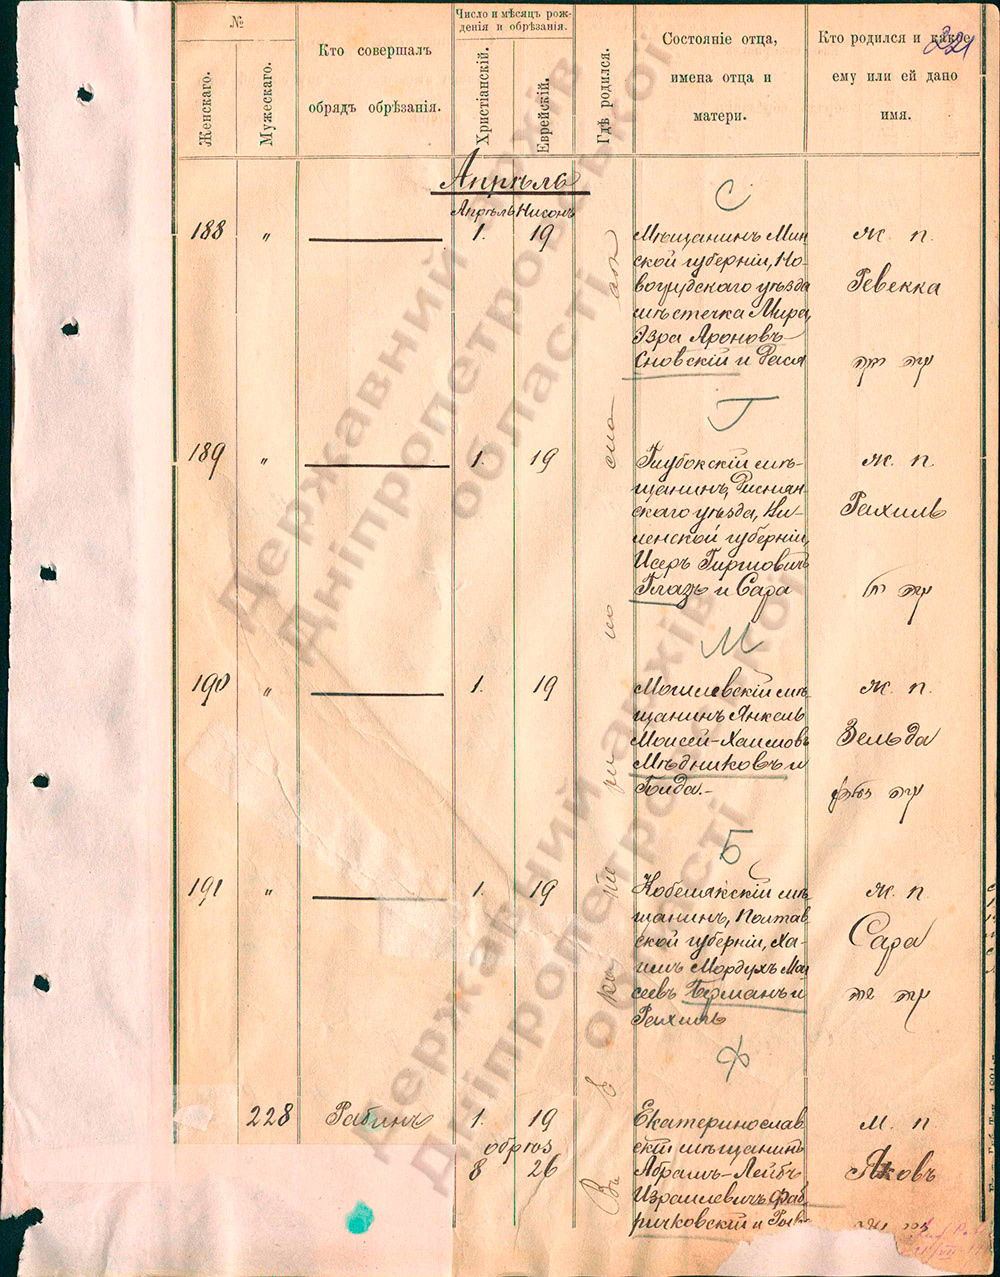 221
№
Женскаго.
Мужескаго.
Кто совершалъ
обрядъ обрѣзанія.
Число и мѣсяцъ рож-
денія и обрѣзанія.
Христіанскій.
Еврейскій.
Гдѣ родился.
Состояніе отца,
имена отца и
матери.
Кто родился и какое
ему или ей дано
имя.
Апрѣль
Апрѣль Нисонъ
С
188 " 1. 19
Мѣщанинъ Мин
ской губерніи, Но-
вогрудскаго уѣзда
мѣстечка Мира,
Эзра Ароновъ
Сновскій и Рася
Ж. п.
Ревекка
Г
189 " 1. 19
Глубокскій мѣ-
щанинъ, Диснян-
скаго уѣзда, Ви-
ленской губерніи,
Исеръ Гиршовичъ
Глазъ и Сара
Ж. п.
Рахиль
М
190 " 1. 19
Могилевскій мѣ-
щанинъ Янкель
Моисей-Хаимовъ
Мѣдниковъ и
Голда.-
Ж. п.
Зельда
Б
191 " 1. 19
Кобелякскій мѣ-
щанинъ, Полтав
ской губерніи, Ха-
имъ Мордухъ Мои
сеевъ Берманъ и
Рахиль
Ж. п.
Сара
Ф
228 Рабинъ 1. 19
обрѣз
8 26
Екатеринослав
скій мѣщанинъ
Абрамъ-Лейбъ
Израилевичъ Фаб
ричковскій и
М. п.
Яковъ
Державний архів
Дніпропетровської
області
Державний архів
Дніпропетровської
області